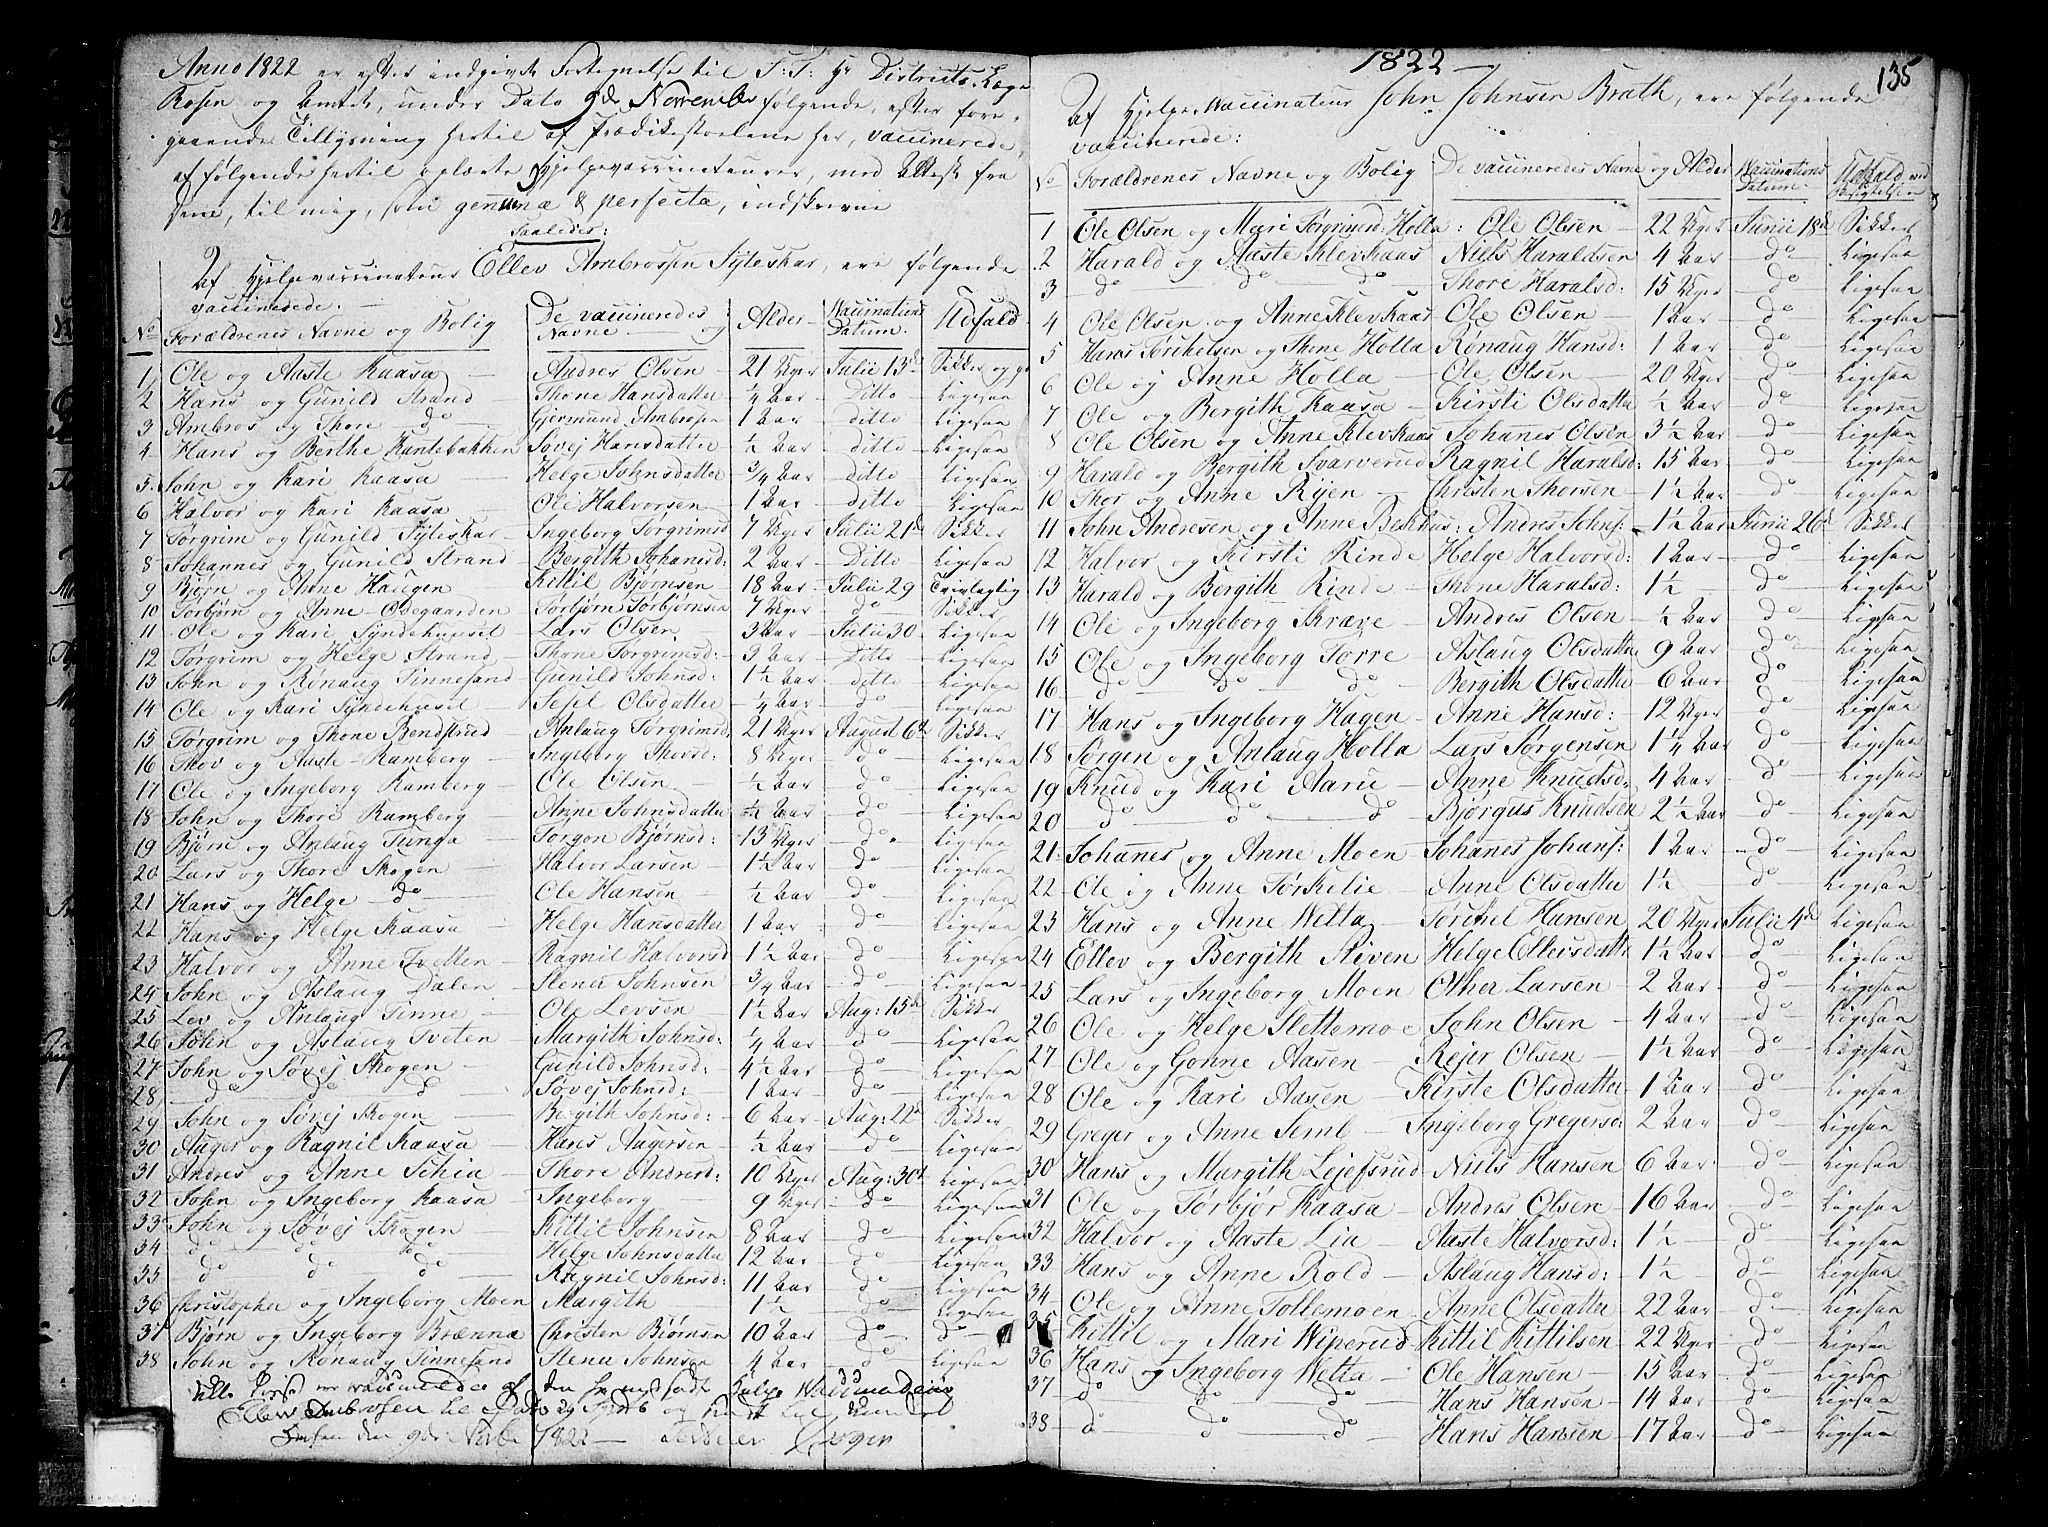 Anno 1822 er efter indgivne Fortegnelse til S: T: Hr Districts Læge
Rosen og Amtet, under Dato 9de Novembr følgende, efter fore-
gaaende Tillysning hertil af Prædikestoelene her, vaccinerede,
af følgende hertil oplærte Hjelpevaccinateurer, med Attest fra
dem, til mig, som genuinæ & perfecta, indskrevne
Saaledes:
Af Hjelpevaccinateur Ellev Ambrossen Sÿteskar, ere følgende
vaccinerede. —
No Forældrenes Navne og Bolig De vaccineredes Navne og Alder Vaccinations Datum. Udfald
1 Ole og Aaste Kaasa — Andres Olsen — 21 Uger Julii 13de Sikker og
2 Hans og Gunild Strand — Thone Hansdatter ¼ Aar Ditto Ligesaa
3 Ambros og Thore do — Gjermund Ambrosen 1 Aar ditto Ligesaa
4 Hans og Berthe Kantebakken Søvej Hansdatter ½ Aar ditto Ligesaa
5 John og Kari Kaasa — Helge Johnsdatter ¾ Aar Ditto Ligesaa
6 Halvor og Kari Kaasa — Ole Halvorsen 1 Aar ditto Ligesaa
7 Torgrim og Gunild Sÿteskar — Ingeborg Torgrimsd 7 Uger Julii 21de Sikker
8 Johannes og Gunild Strand Bergith Johansd: 2 Aar Ditto Ligesaa
9 Bjørn og Anne Haugen Kittil Bjørnsen 18 Aar Julii 29 Tvivlagtig
10 Torbjørn og Anne Odegaarden Torbjørn Torbjørnsen 7 Uger do Sikker
11 Ole og Kari Sÿndehuuset Lars Olsen — 3 Aar Julii 30 Ligesaa
12 Torgrim og Helge Strand — Thone Torgrimsd: 3 Aar Ditto Ligesaa
13 John og Rønaug Tinnesand Gunild Johnsd: 1½ Aar ditto Ligesaa
14 Ole og Kari Sÿndehuset — Sejel Olsdatter ¼ Aar do Ligesaa
15 Torgrim og Thone Bendstrud — Anlaug Torgrimsd 21 Uger August 6te Sikker
16 Thov og Aaste Ramberg — Ingeborg Thovsd: 8 Uger do Ligesaa
17 Ole og Ingeborg Ramberg — Ole Olsen — ½ Aar do Ligesaa
18 John og Thore Ramberg — Anne Johnsdatter ½ Aar do Ligesaa
19 Bjørn og Anlaug Tunga — Torgon Bjørnsd: 13 Uger do Ligesaa
20 Lars og Thore Skogen — Halvor Larsen — 1½ Aar do Ligesaa
21 Hans og Helge do — Ole Hansen — ½ Aar do Ligesaa
22 Hans og Helge Kaasa — Helge Hansdatter 1 Aar do Ligesaa
23 Halvor og Anne Tvetten — Ragnil Halvorsd 1½ Aar do Ligesaa
24 John og Aslaug Dalen — Stener Johnsen ¾ Aar d Ligesaa
25 Lev og Anlaug Tinne — Ole Levsen — 1½ Aar Aug: 15de Sikker
26 John og Aslaug Tveten — Margith Johnsd: ¼ Aar do Ligesaa
27 John og Søvej Skogen — Gunild Johnsd: 4½ Aar do Ligesaa
28 do do do Søvej Johnsd: 1 Aar do Ligesaa
29 John og Søvej Skogen Bergith Johnsd: 6 Aar Aug: 22de Sikker
30 Auger og Ragnil Kaasa — Hans Augersen — ½ Aar do Ligesaa
31 Andres og Anne Schia — Thore Andresd: 10 Uger Aug: 30te Ligesaa
32 John og Ingeborg Kaasa — Ingeborg — 9 Uger do Ligesaa
33 John og Søvej Skogen — Kittil Johnsen 8 Aar do Ligesaa
34 do do do Helge Johnsdatter 12 Aar do Ligesaa
35 do do do Ragnil Johnsd: 11 Aar do Ligesaa
36 Christopher og Ingeborg Moen Margith — 1½ do Ligesaa
37 Bjørn og Ingeborg Brænna Christen Bjørnsen 10 Aar do do
38 John og Rønaug Tinnesand Stener Johnsen 4 Aar do Ligesaa
1822 —
1822 —
135
Af Hjelpe Vaccinateur John Johnsen Brath, ere følgende
vaccinerede:
No Forældrenes Navne og Bolig De vaccineredes Navne og Alder Vaccinations Datum. Udfald ved Besigtelsen
1 Ole Olsen og Mari Torgrimsd: Holla: Ole Olsen — 22 Uger Junii 18de Sikker
2 Harald og Aaste Klevkaas Niels Haraldsen 4 Aar do Ligesaa
3 do do do Thore Haralsd: 15 Uger do Ligesaa
4 Ole Olsen og Anne Klevkaas Ole Olsen — 1 Aar do Ligesaa
5 Hans Torchelsen og Thone Holla Rønaug Hansd: 1 Aar do Ligesaa
6 Ole og Anne Holla — Ole Olsen — 20 Uger do Ligesaa
7 Ole og Bergith Kaasa — Kirsti Olsdatter ½ Aar do Ligesaa
8 Ole Olsen og Anne Klevkaas Johanes Olsen 3½ Aar do Ligesaa
9 Harald og Bergith Svarverud Ragnil Haralsd: 15 Aar do Ligesaa
10 Thor og Anne Rijen — Christen Thorsen 1½ Aar do Ligesaa
11 John Andresen og Anne Beskhus: Andres Johns: 1½ Aar Junii 26de Sikker
12 Halvor og Kirsti Rinde Helge Halvorsd: 1 Aar do Ligesaa
13 Harald og Bergith Rinde — Thone Haralsd: 1½ do Ligesaa
14 Ole og Ingeborg Skræve — Andres Olsen ½ Aar do Ligesaa
15 Ole og Ingeborg Torre — Aslaug Olsdatter 9 Aar do Ligesaa
16 do do do Bergith Olsdatter 6 Aar do Ligesaa
17 Hans og Ingeborg Hagen — Anne Hansd: 12 Uger do Ligesaa
18 Jørgen og Anlaug Holla — Lars Jørgensen 1¼ Aar do Ligesaa
19 Knud og Kari Aarie — Anne Knudsd: 4 Aar do Ligesaa
20 do do do Bjørgus Knudsen 2½ Aar do Ligesaa
21 Johanes og Anne Moen Johanes Johans: 1 Aar do Ligesaa
22 Ole og Anne Torkelie — Anne Olsdatter 1½ do Ligesaa
23 Hans og Anne Wetta — Torchel Hansen 20 Uger Julii 4de Ligesaa
24 Ellev og Bergith Stiven Helge Ellevsdattr 1½ Aar do Ligesaa
25 Lars og Ingeborg Moen Other Larsen 2 Aar do Ligesaa
26 Ole og Helge Slettemoe John Olsen — 4 Aar do Ligesaa
27 Ole og Gonne Aasen — Rejer Olsen — 1½ Aar do Ligesaa
28 Ole og Kari Aasen — Kirste Olsdatter 1 Aar do Ligesaa
29 Greger og Anne Semb — Ingeborg Gregersd: 2 Aar do Ligesaa
30 Hans og Margith Lejefsrud Niels Hansen 6 Aar do Ligesaa
31 Ole og Torbjør Kaasa — Andres Olsen — 16 Aar do Ligesaa
32 Halvor og Aaste Lia — Aaste Halvorsd: 1½ do Ligesaa
33 Hans og Anne Rold — Aslaug Hansd: 1½ do Ligesaa
34 Ole og Anne Tollemoen — Anne Olsdatter 22 Aar do Ligesaa
35 Kittil og Mari Wiperud — Kittil Kittilsen 22 Uger do Ligesaa
36 Hans og Ingeborg Wetta — Ole Hansen — 15 Aar do Ligesaa
37 do do do Hans Hansen 14 Aar do Ligesaa
38 do do do Hans Hansen 17 Aar do Ligesaa